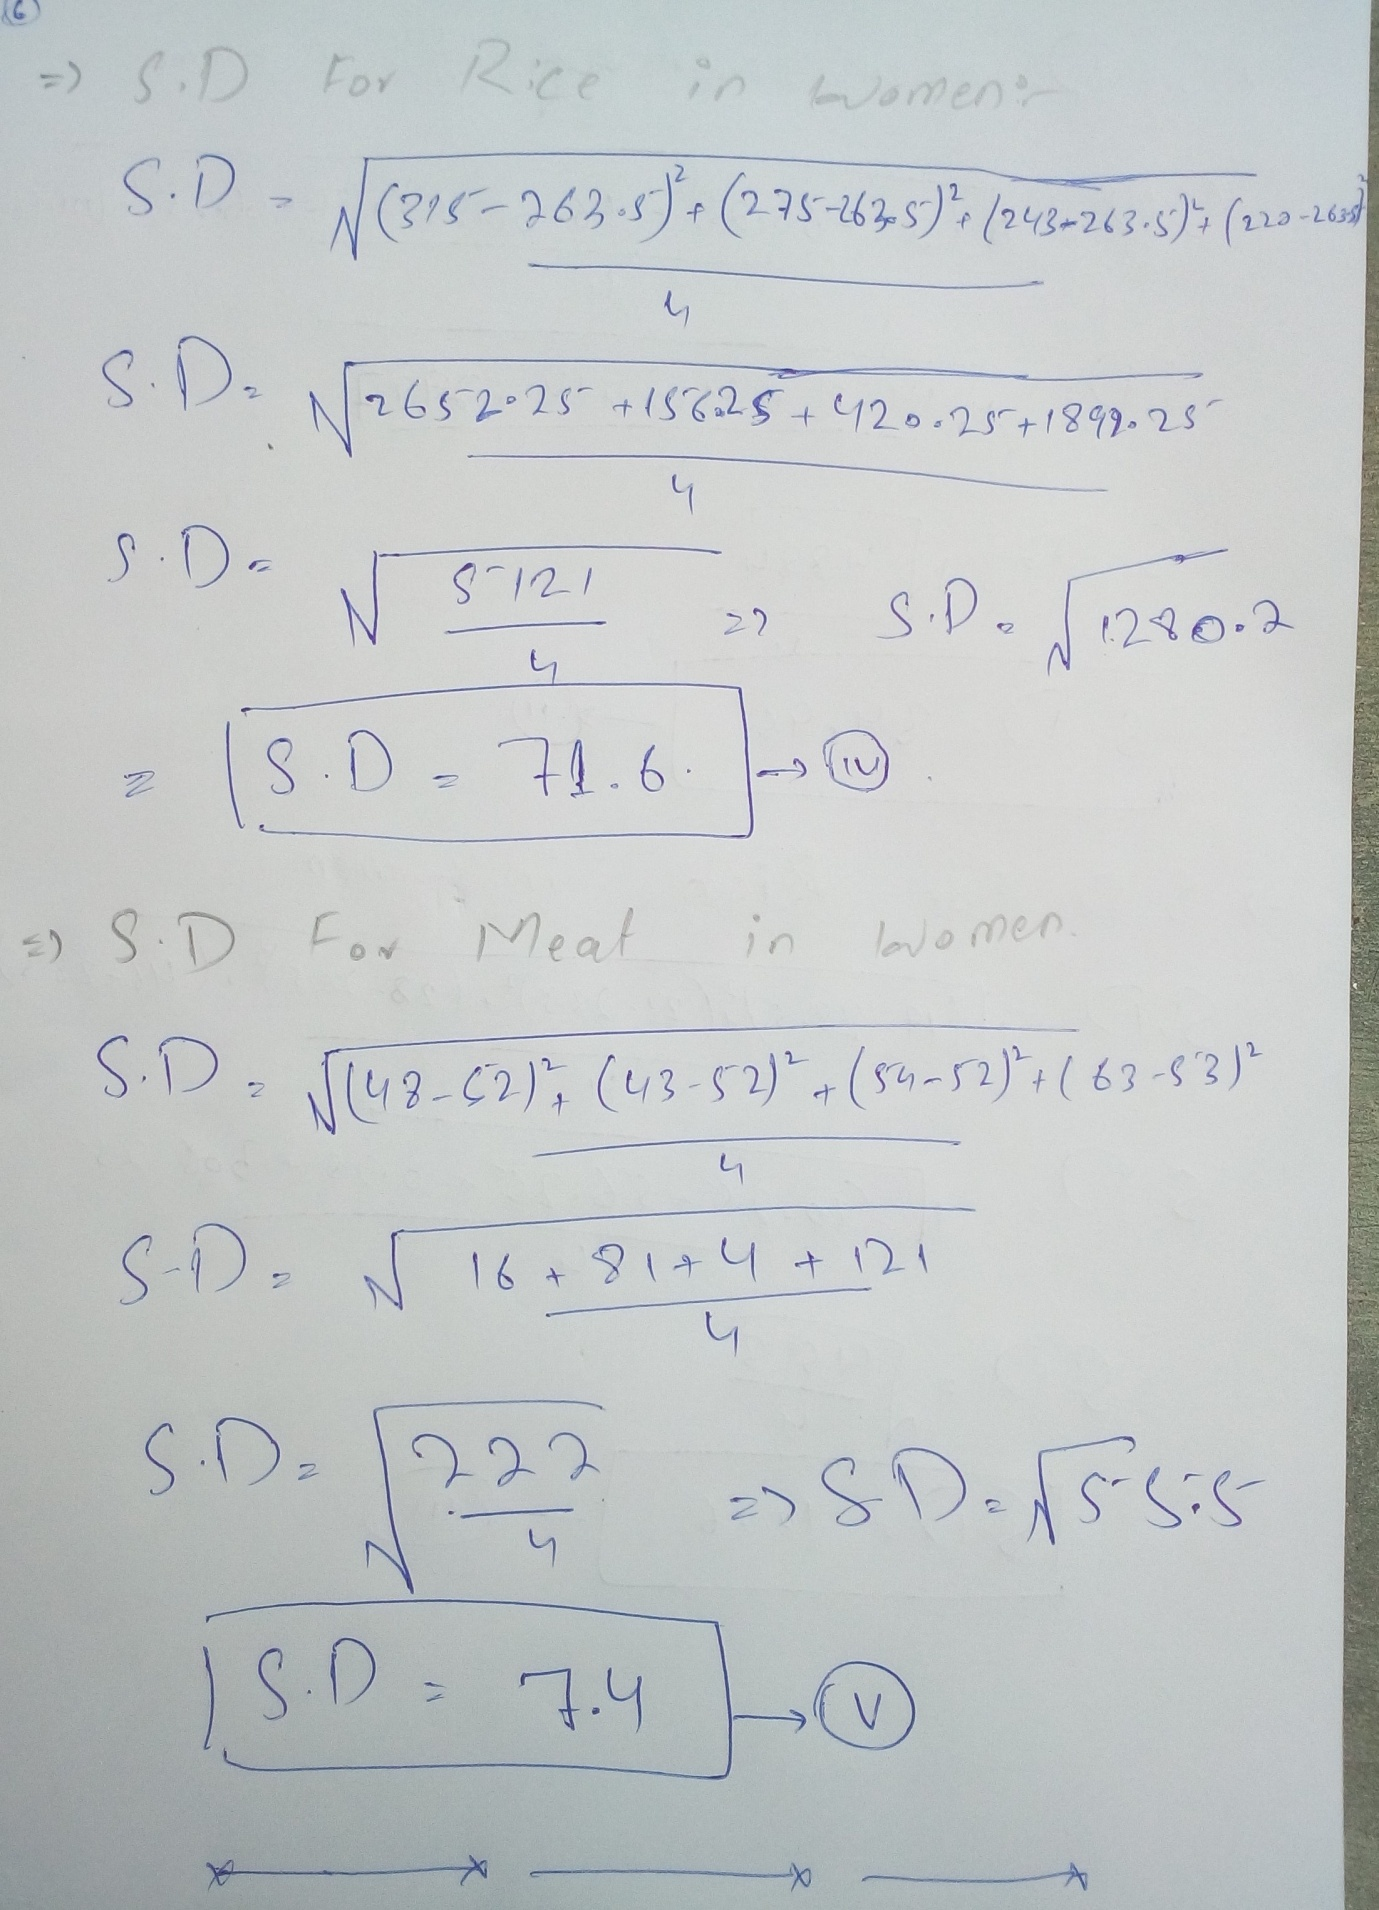 6
=> S.D For Rice in women:-
S.D = √(315-263.5)²+(275-263.5)²+(243-263.5)²+(220-263.5)²
4
S.D = √2652.25+156.25+420.25+1892.25
4
S.D = √5121/4 => S.D = √1280.2
= S.D = 71.6. → IV
=> S.D For Meat in women.
S.D = √(48-52)²+(43-52)²+(54-52)²+(63-53)²
4
S.D = √16+81+4+121
4
S.D = √222/4 => S.D = √55.5
S.D = 7.4 → V